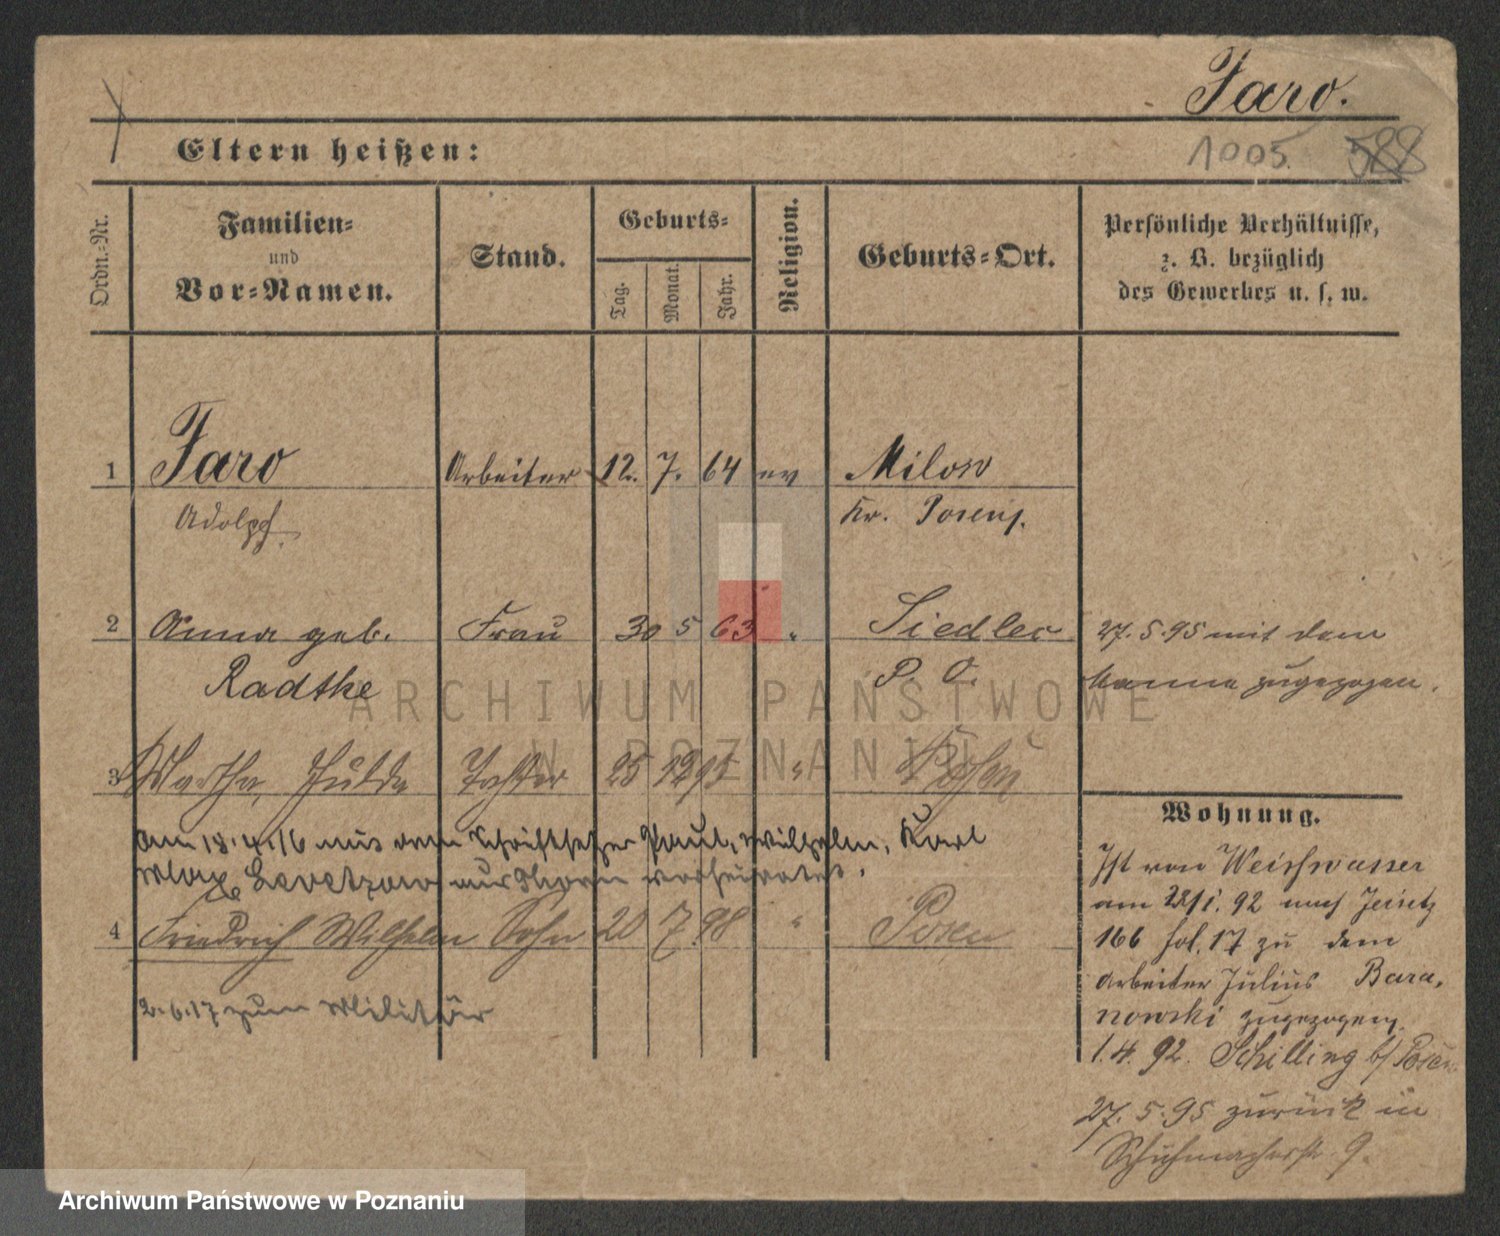 Faro.
Eltern heißen:
1005. 588
Ordn.=Nr.
Familien=
und
Vor=Namen.
Stand.
Geburts=
Tag.
Monat.
Jahr.
Religion.
Geburts=Ort.
Persönliche Verhältnisse,
z. B. bezüglich
des Gewerbes u. s. w.
1 Faro Arbeiter 12. 7. 64 ev Milow
Adolph Kr. Posen
2 Anna geb. Frau 30 5 63 " Siedlec
Radtke P. O.
27. 5. 95 mit dem
Manne zugezogen.
3 Martha, Hulda Tochter 25 12 95 " Posen
Am 18.4.16 mit dem Schriftsetzer Paul, Wilhelm, Karl
Max Levetzow aus Thorn verheiratet.
4 Friedrich Wilhelm Sohn 20 7 98 " Posen
2.6.17 zum Militär
Wohnung.
Ist von Weisswasser
am 22/1. 92 nach Jersitz
166 fol. 17 zu dem
Arbeiter Julius Bara-
nowski zugezogen.
1.4. 92. Schilling b/ Posen.
27. 5. 95 zurück in
Schuhmacherstr. 9.
ARCHIWUM PAŃSTWOWE
W POZNANIU
Archiwum Państwowe w Poznaniu